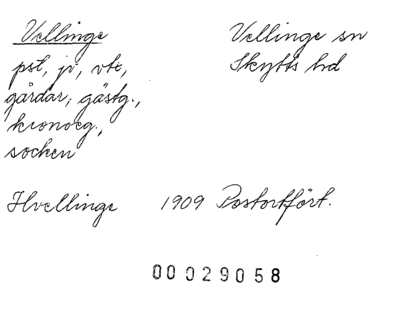 Vellinge
Vellinge sn
pst, jv, vbt,
Skytts hd
gårdar, gästg.,
kronoeg.,
socken
Hvellinge 1909 Postortfört.
00029058